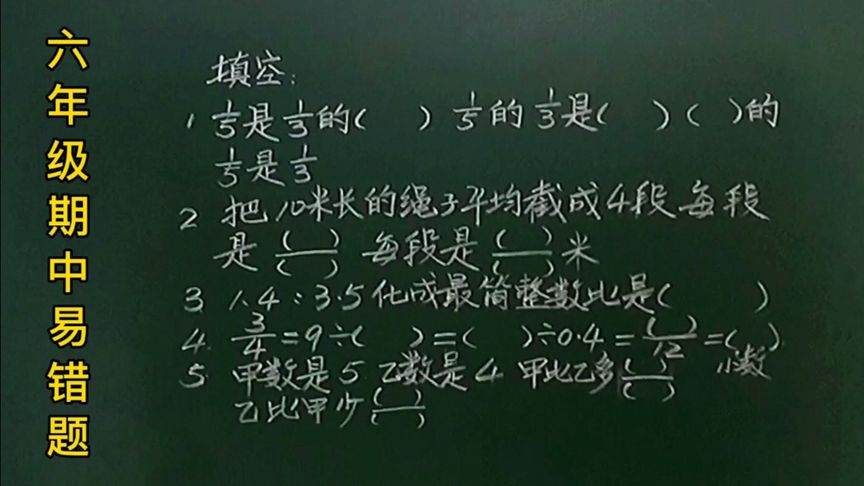 六年级期中易错题
填空:
1 1/5是1/3的( ) 1/5的1/3是( ) ( )的
1/5是1/3
2 把10米长的绳子平均截成4段 每段
是 ( )/( ) 每段是 ( )/( ) 米
3 1.4:3.5化成最简整数比是( )
4. 3/4=9÷( )=( )÷0.4=( )/12=( )
小数
5 甲数是5 乙数是4 甲比乙多( )/( )
乙比甲少( )/( )